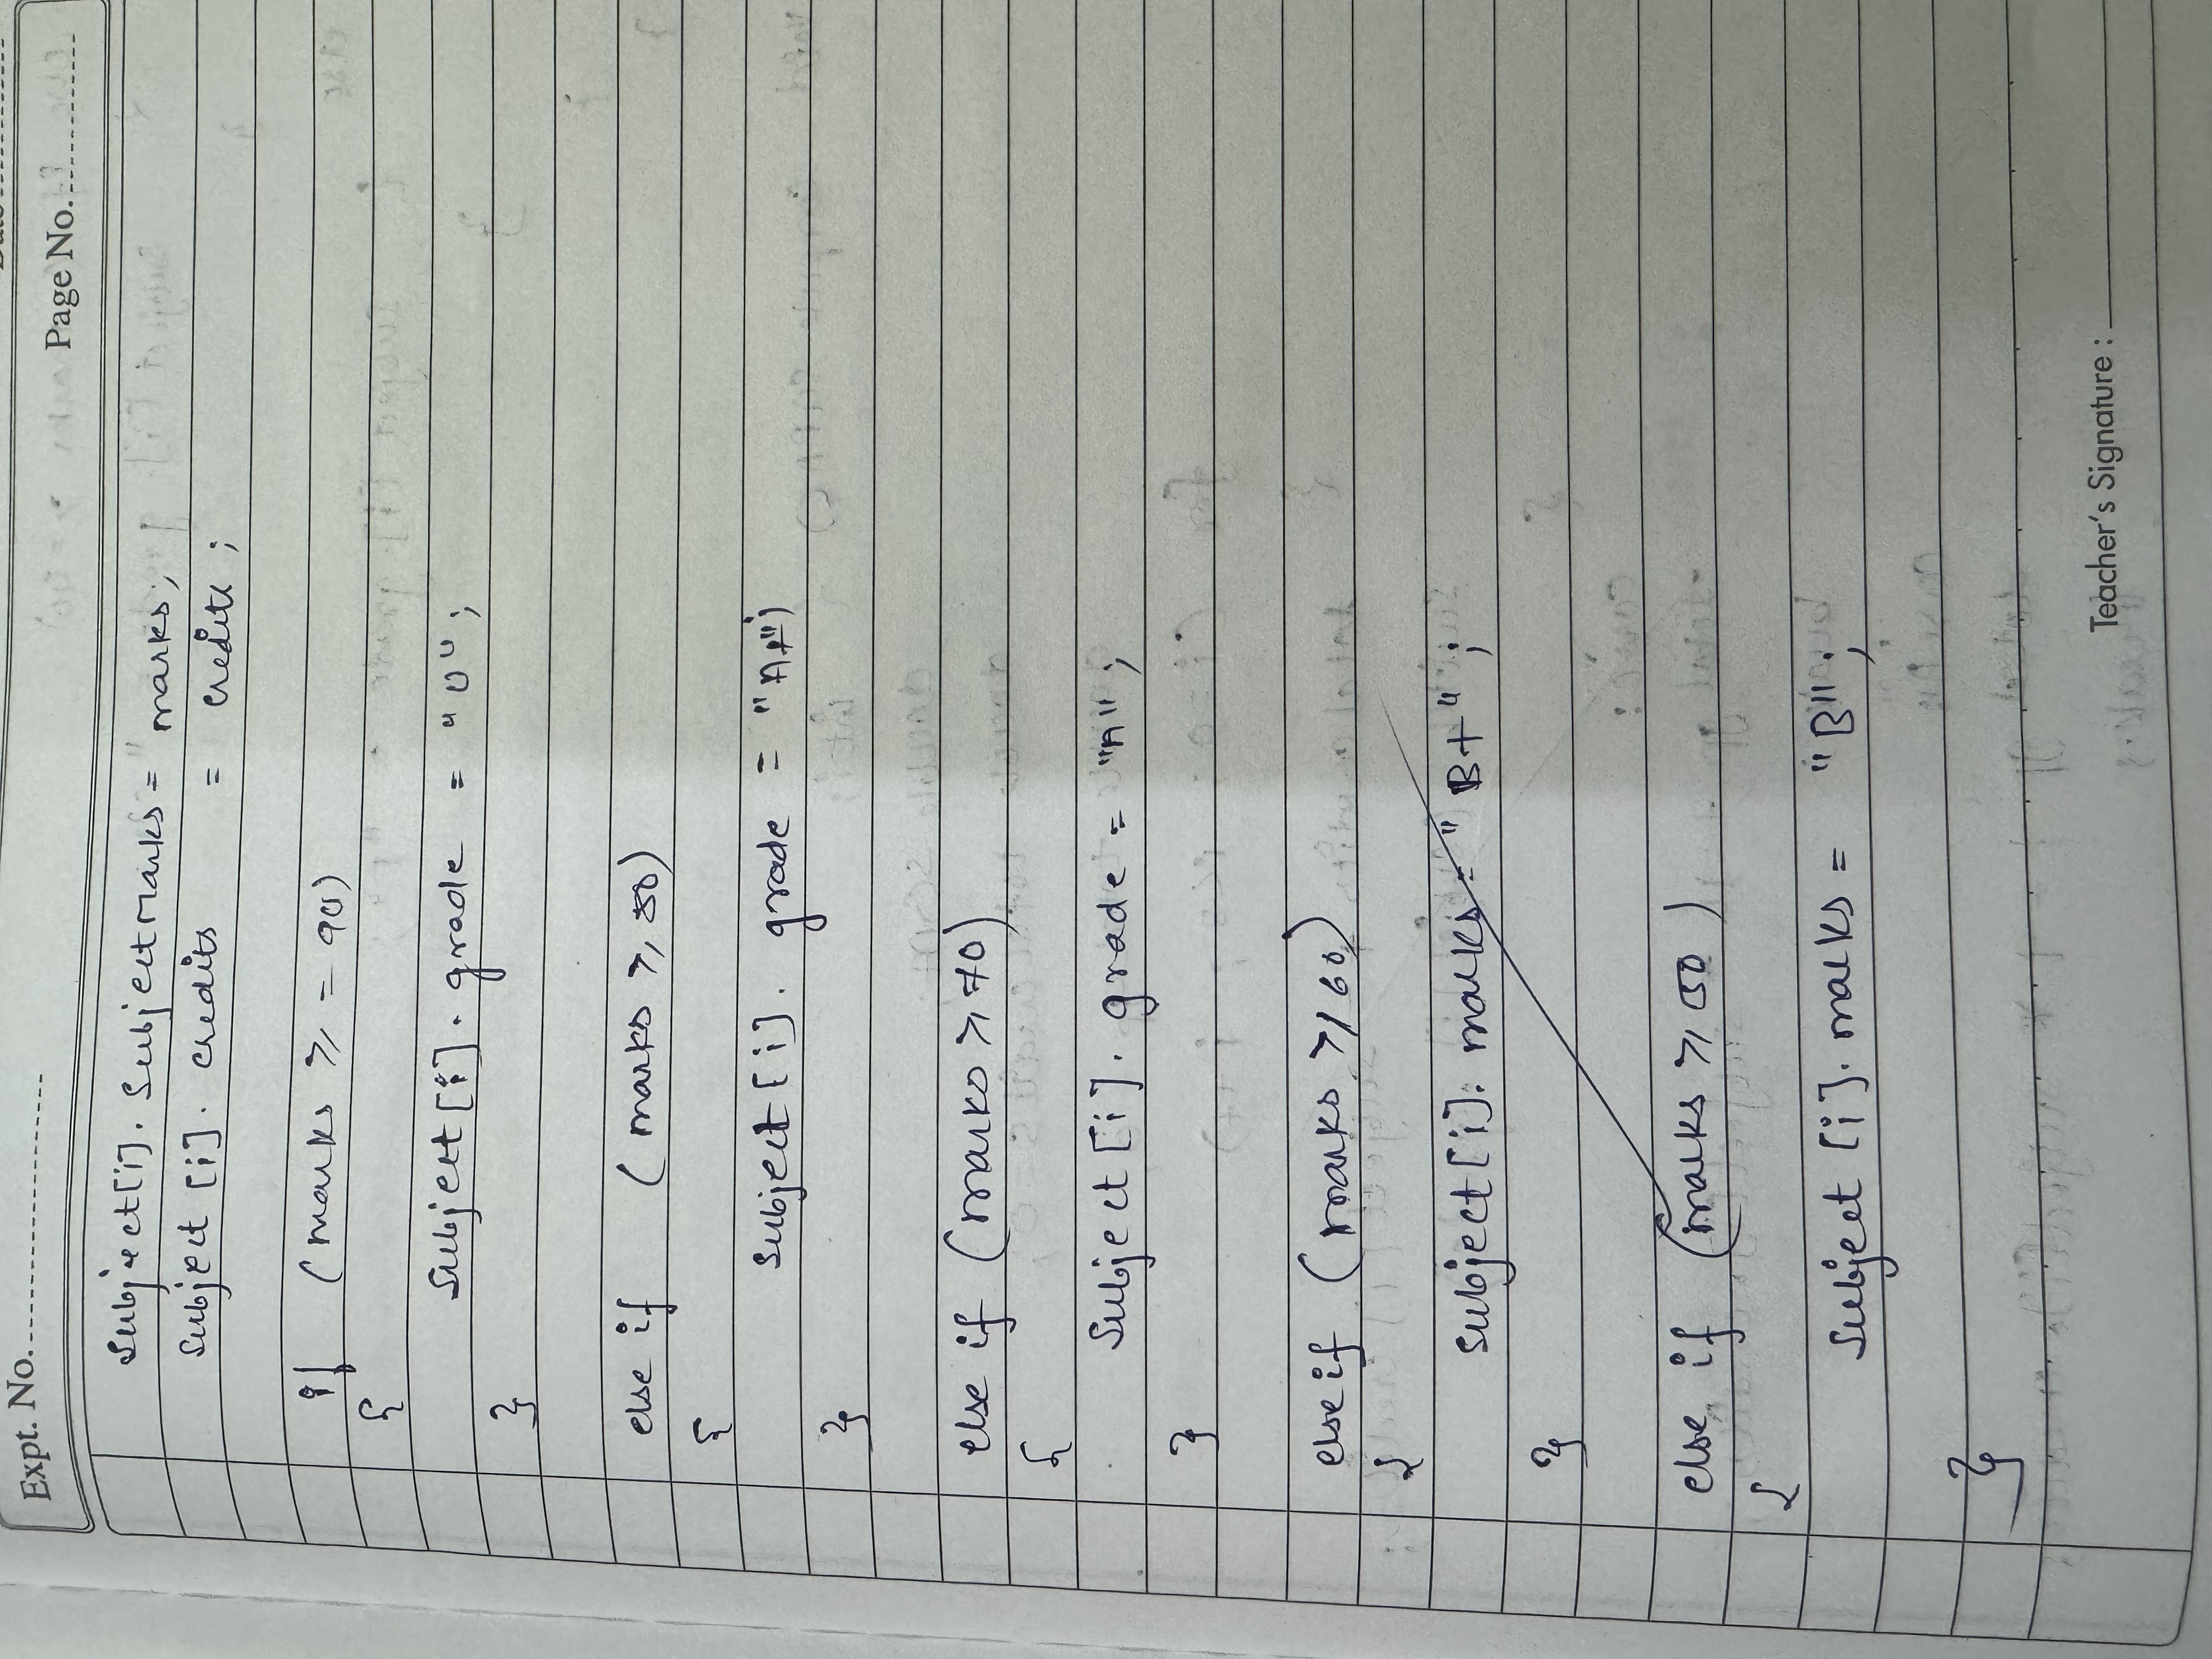 Expt. No.
Page No.
Subject[i]. SubjectMarks = marks;
Subject [i]. credits = credits ;
if (marks ⩾ = 90)
{
Subject[i]. grade = "O" ;
}
else if ( marks ⩾ 80)
{
Subject [i]. grade = "A+";
}
else if (marks ⩾ 70)
{
Subject [i]. grade = "A" ;
}
else if (marks ⩾ 60)
{
subject [i]. marks = "B+" ;
}
else if (marks ⩾ 50 )
{
Subject [i]. marks = "B" ;
}
Teacher's Signature :